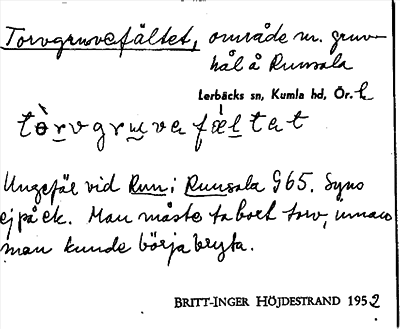 Torvgruvefältet, område m. gruv-
hål å Runsala
Lerbäcks sn, Kumla hd, Ör. l.
tòrvgruvefæltet
Ungefär vid Run i Runsala 965. Syns
ej på ek. Man måste ta bort torv, innan
man kunde börja bryta.
BRITT-INGER HÖJDESTRAND 1952